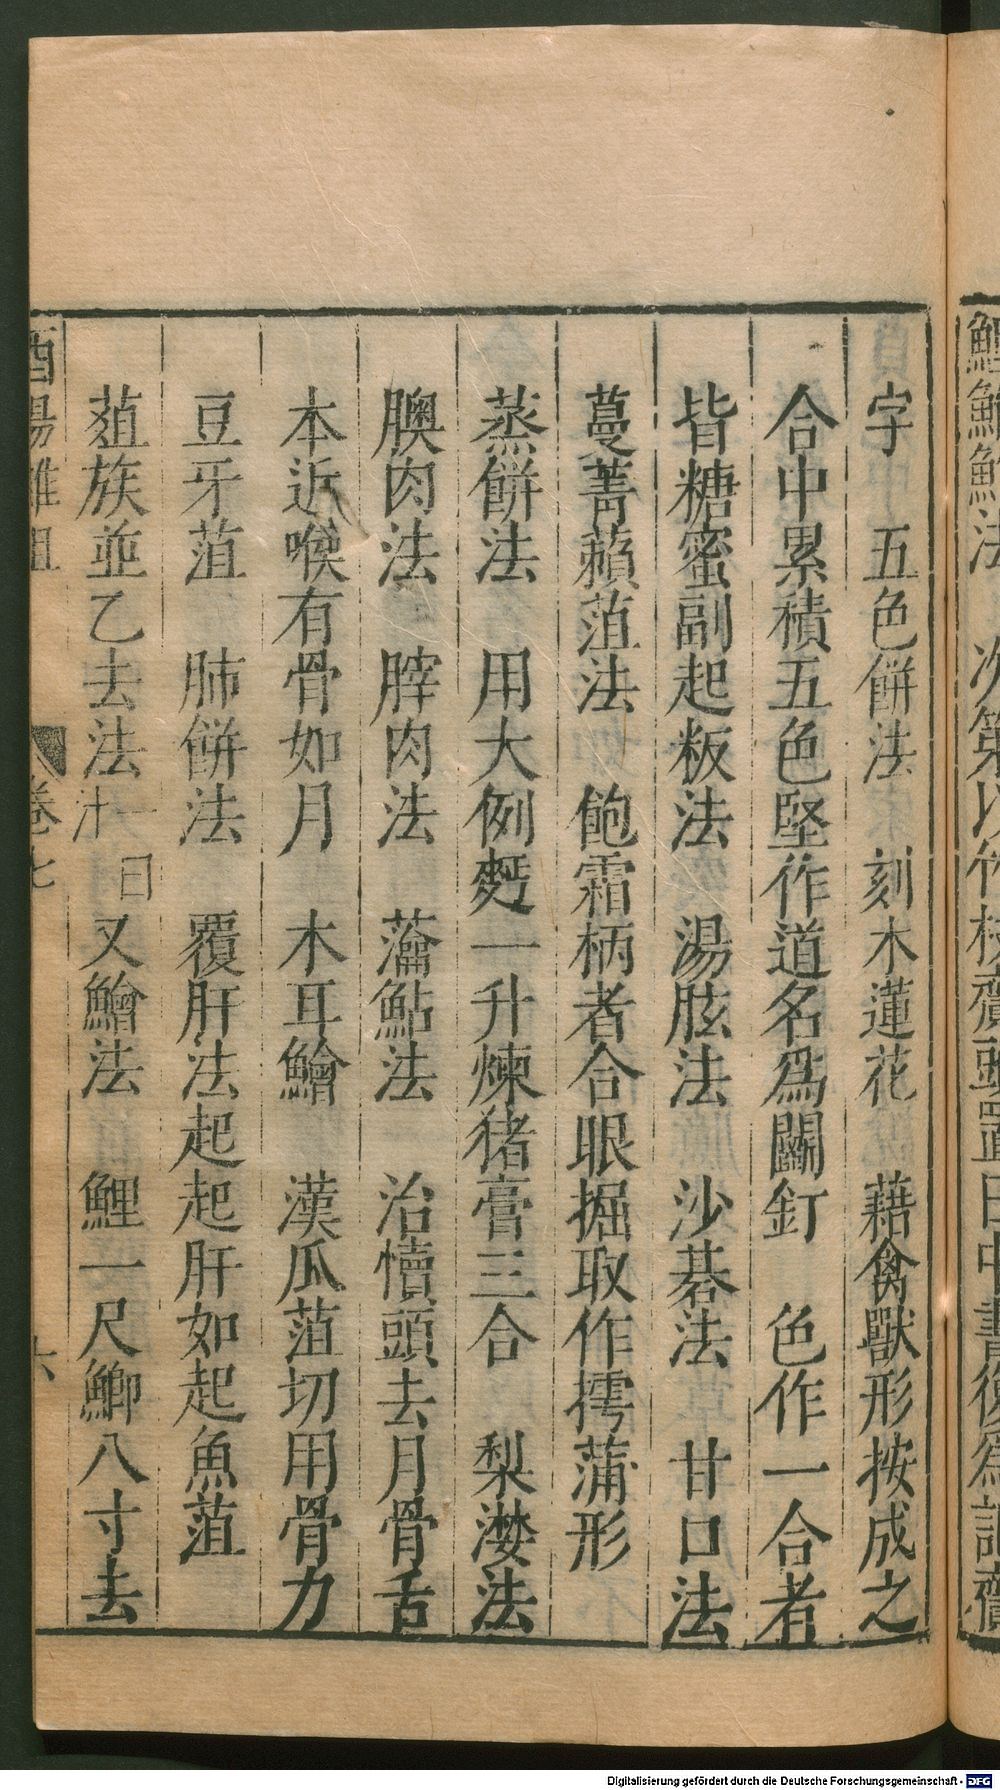 字　五色餅法　刻木蓮花　藉禽獸形按成之
合中累積五色竪作道名爲鬬釘　色作一合者
皆糖蜜副起粄法　湯胘法　沙棊法　甘口法
蔓菁蘋菹法　飽霜柄者合眼掘取作摴蒲形
蒸餅法　用大例麪一升煉猪膏三合　梨漤法
腝肉法　䐹肉法　瀹鮎法　治犢頭去月骨舌
本近喉有骨如月　木耳鱠　漢瓜菹切用骨刀
豆牙菹　肺餅法　覆肝法起起肝如起魚菹
菹族並乙去法汁一曰又鱠法　鯉一尺鯽八寸去
酉陽雜俎　卷七　六
Digitalisierung gefördert durch die Deutsche Forschungsgemeinschaft - DFG